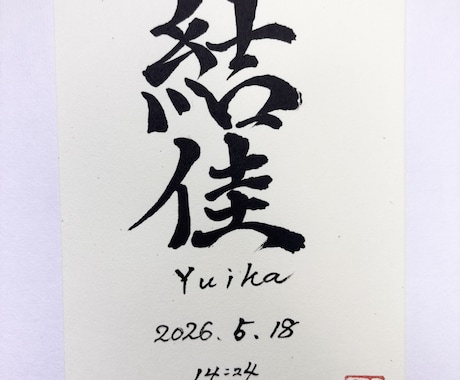 結佳
Yuika
2026.5.18
14:24